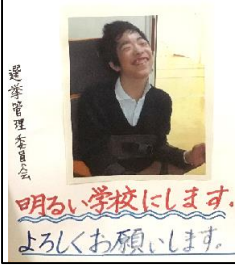 選挙管理委員会
明るい学校にします.
よろしくお願いします。